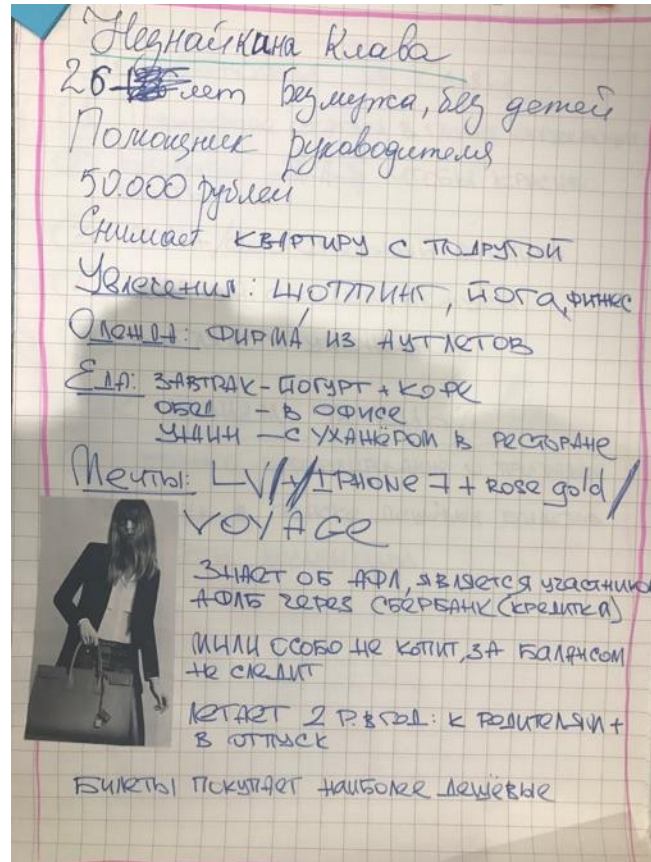 Незнайкина Клава
26 лет Без мужа, без детей
Помощник руководителя
50.000 рублей
Снимает квартиру с подругой
Увлечения: шоппинг, йога, фитнес
Одежда: фирма из аутлетов
Еда: завтрак - йогурт + кофе
обед - в офисе
ужин - с ухажёром в ресторане
Мечты: LV / IPHONE 7 + Rose gold /
VOYAGE
Знает об АФЛ, является участником
АФЛБ через Сбербанк (кредитка)
Мили особо не копит, за балансом
не следит
Летает 2 р. в год: к родителям +
в отпуск
Билеты покупает наиболее дешёвые